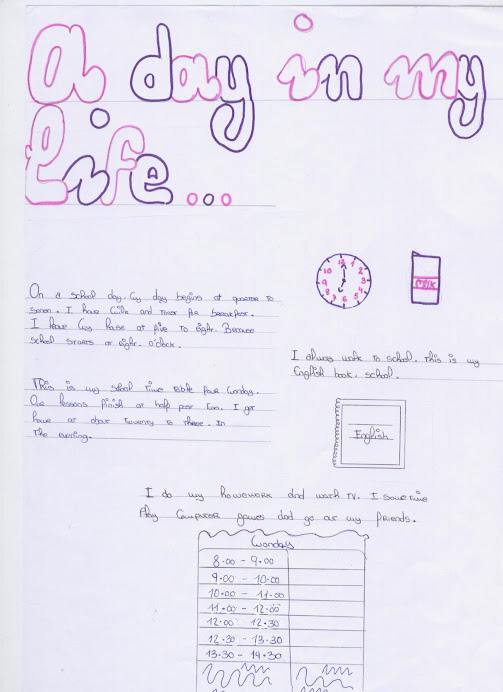 a day in my
life...
12 1 2 3 4 5 6 7 8 9 10
Milk
On a school day, my day begins at quarter to
seven. I have milk and toast for breakfast.
I leave my house at five to eight. Because
school starts at eight. o'clock.
I always walk to school. This is my
English book. school.
This is my school time table four Monday.
Our lessons finish at half past two. I get
home at about twenty to three. In
the evening.
English
I do my homework and watch TV. I sometime
Play computer games and go out my friends.
Monday
8.00 - 9.00
9.00 - 10.00
10.00 - 11.00
11.00 - 12.00
12.00 12.30
12.30 - 13.30
13.30 - 14.30